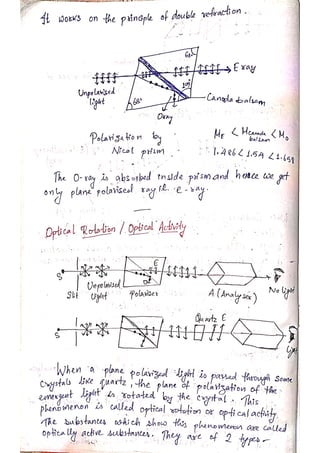 It works on the principle of double refraction.
68°
E ray
Unpolarised
light
68°
Canada balsam
Oray
Polarization by
Nicol prism
ME < Mcanada balsam < Mo
1.486 < 1.54 < 1.658
The O-ray is absorbed inside prism and hence we get
only plane polarised ray i.e. E-ray.
Optical Rotation / Optical Activity
S
E
O
Slit
Unpolarised
light
Polariser
A (Analyser)
No light
Quartz E
S
When a plane polarized light is passed through some
Crystals like quartz, the plane of polarization of the
emergent light is rotated by the crystal. This
phenomenon is called optical rotation or optical activity
The substances which show this phenomenon are called
optically active substances. They are of 2 types-